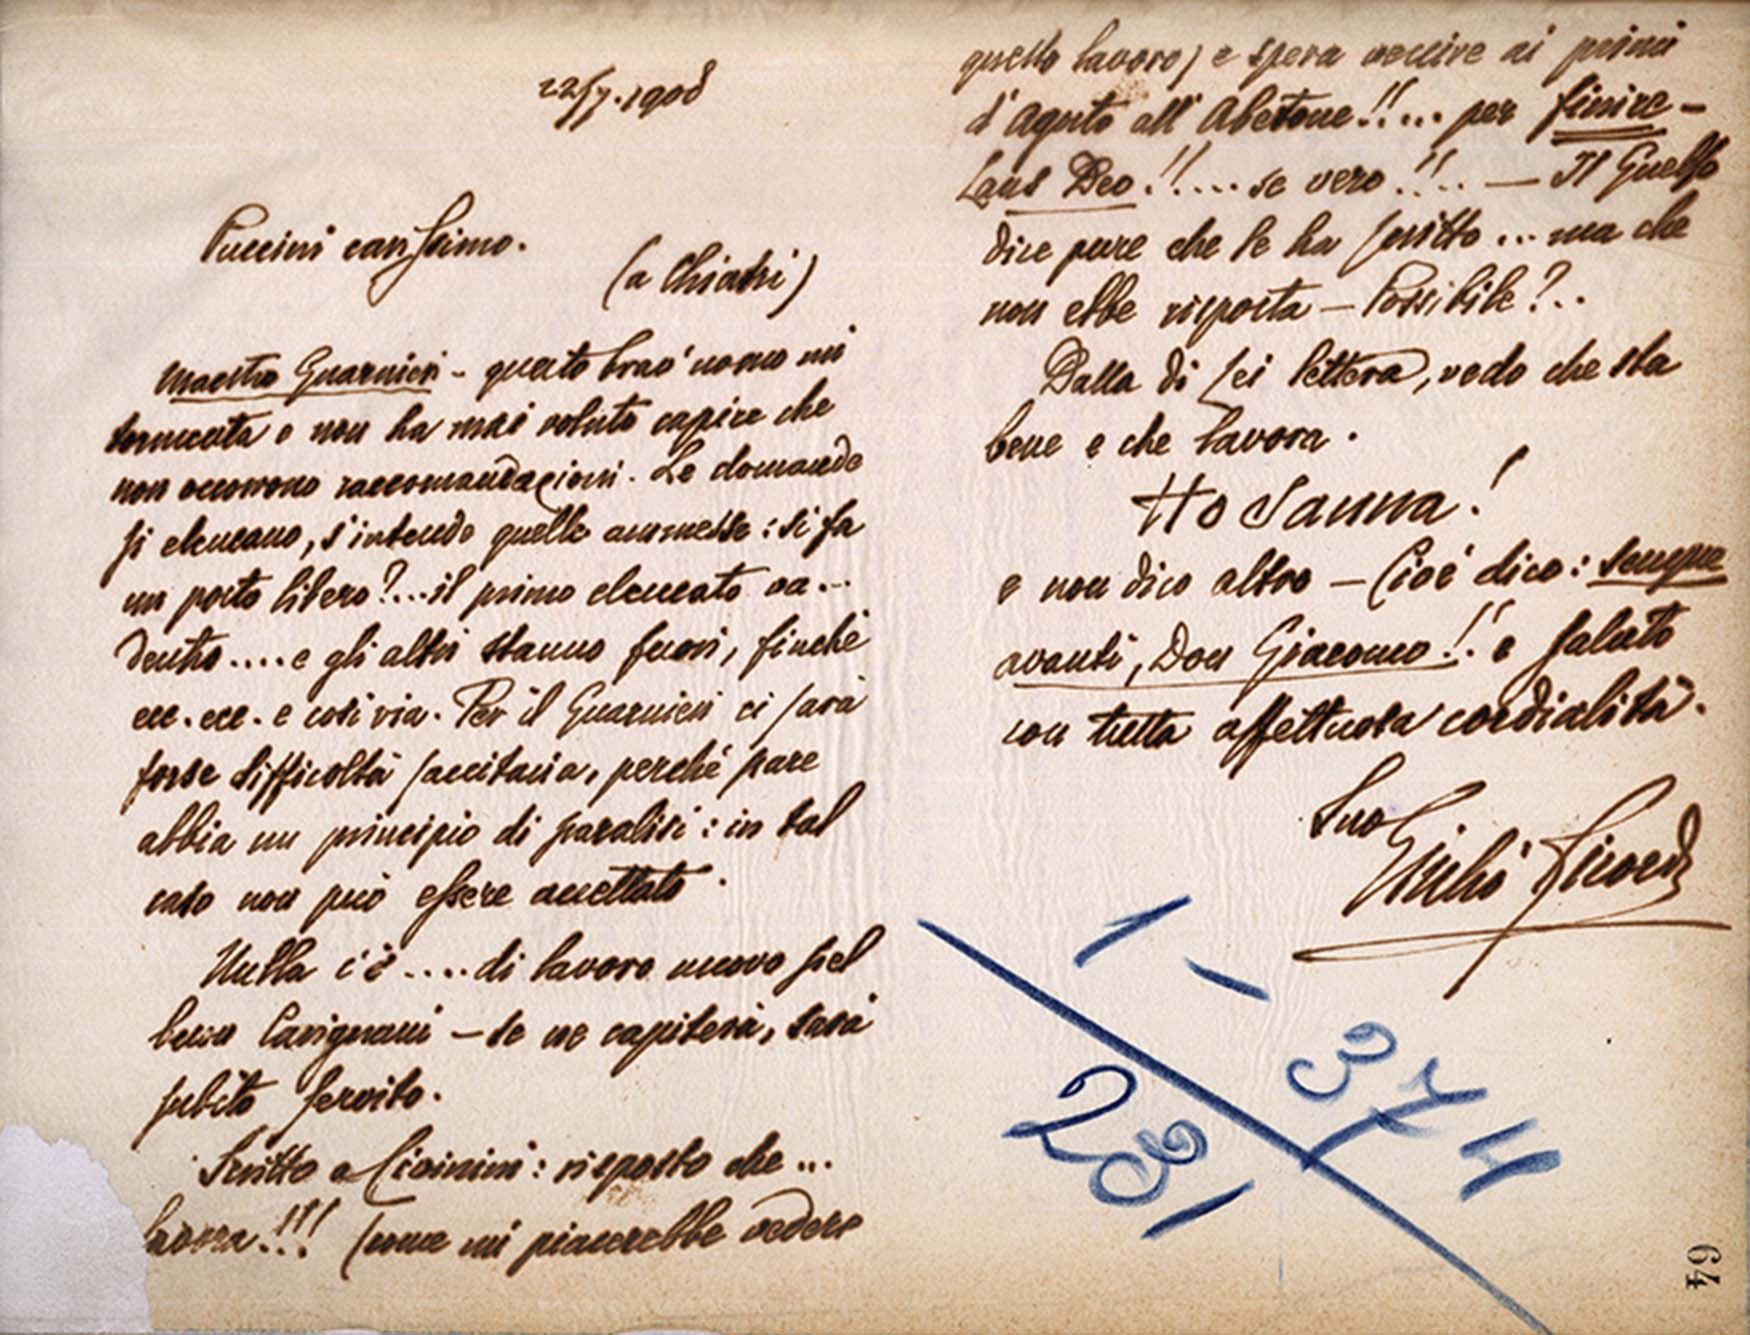 22/7.1908
Puccini carissimo.
(a Chiatri)
Maestro Guarnieri - questo brao' uomo mi
tormenta e non ha mai voluto capire che
non occorrono raccomandazioni. Le domande
si elencano, s'intende quelle ammesse: si fa
un posto libero?... il primo elencato va...
dentro.... e gli altri stanno fuori, finchè
ecc. ecc. e così via. Per il Guarnieri ci sarà
forse difficoltà sanitaria, perchè pare
abbia un principio di paralisi: in tal
caso non può essere accettato.
Nulla c'è .... di lavoro nuovo pel
buon Carignani - se ne capiterà, sarà
subito servito.
Scritto a Civinini: risposto che ...
lavora!!! (come mi piacerebbe vedere
quello lavoro) e spera venire ai primi
d'Agosto all'Abetone!!... per finire -
Laus Deo!!.... se vero!!.. - Il Guelfo
dice pure che le ha scritto ... ma che
non ebbe risposta - Possibile?..
Dalla di Lei lettera, vedo che sta
bene e che lavora.
Ho Sanna!
e non dico altro - Cioè dico: sempre
avanti, Don Giacomo!! e saluto
con tutta affettuosa cordialità.
Suo
Giulio Ricordi
1 - 374
231
64